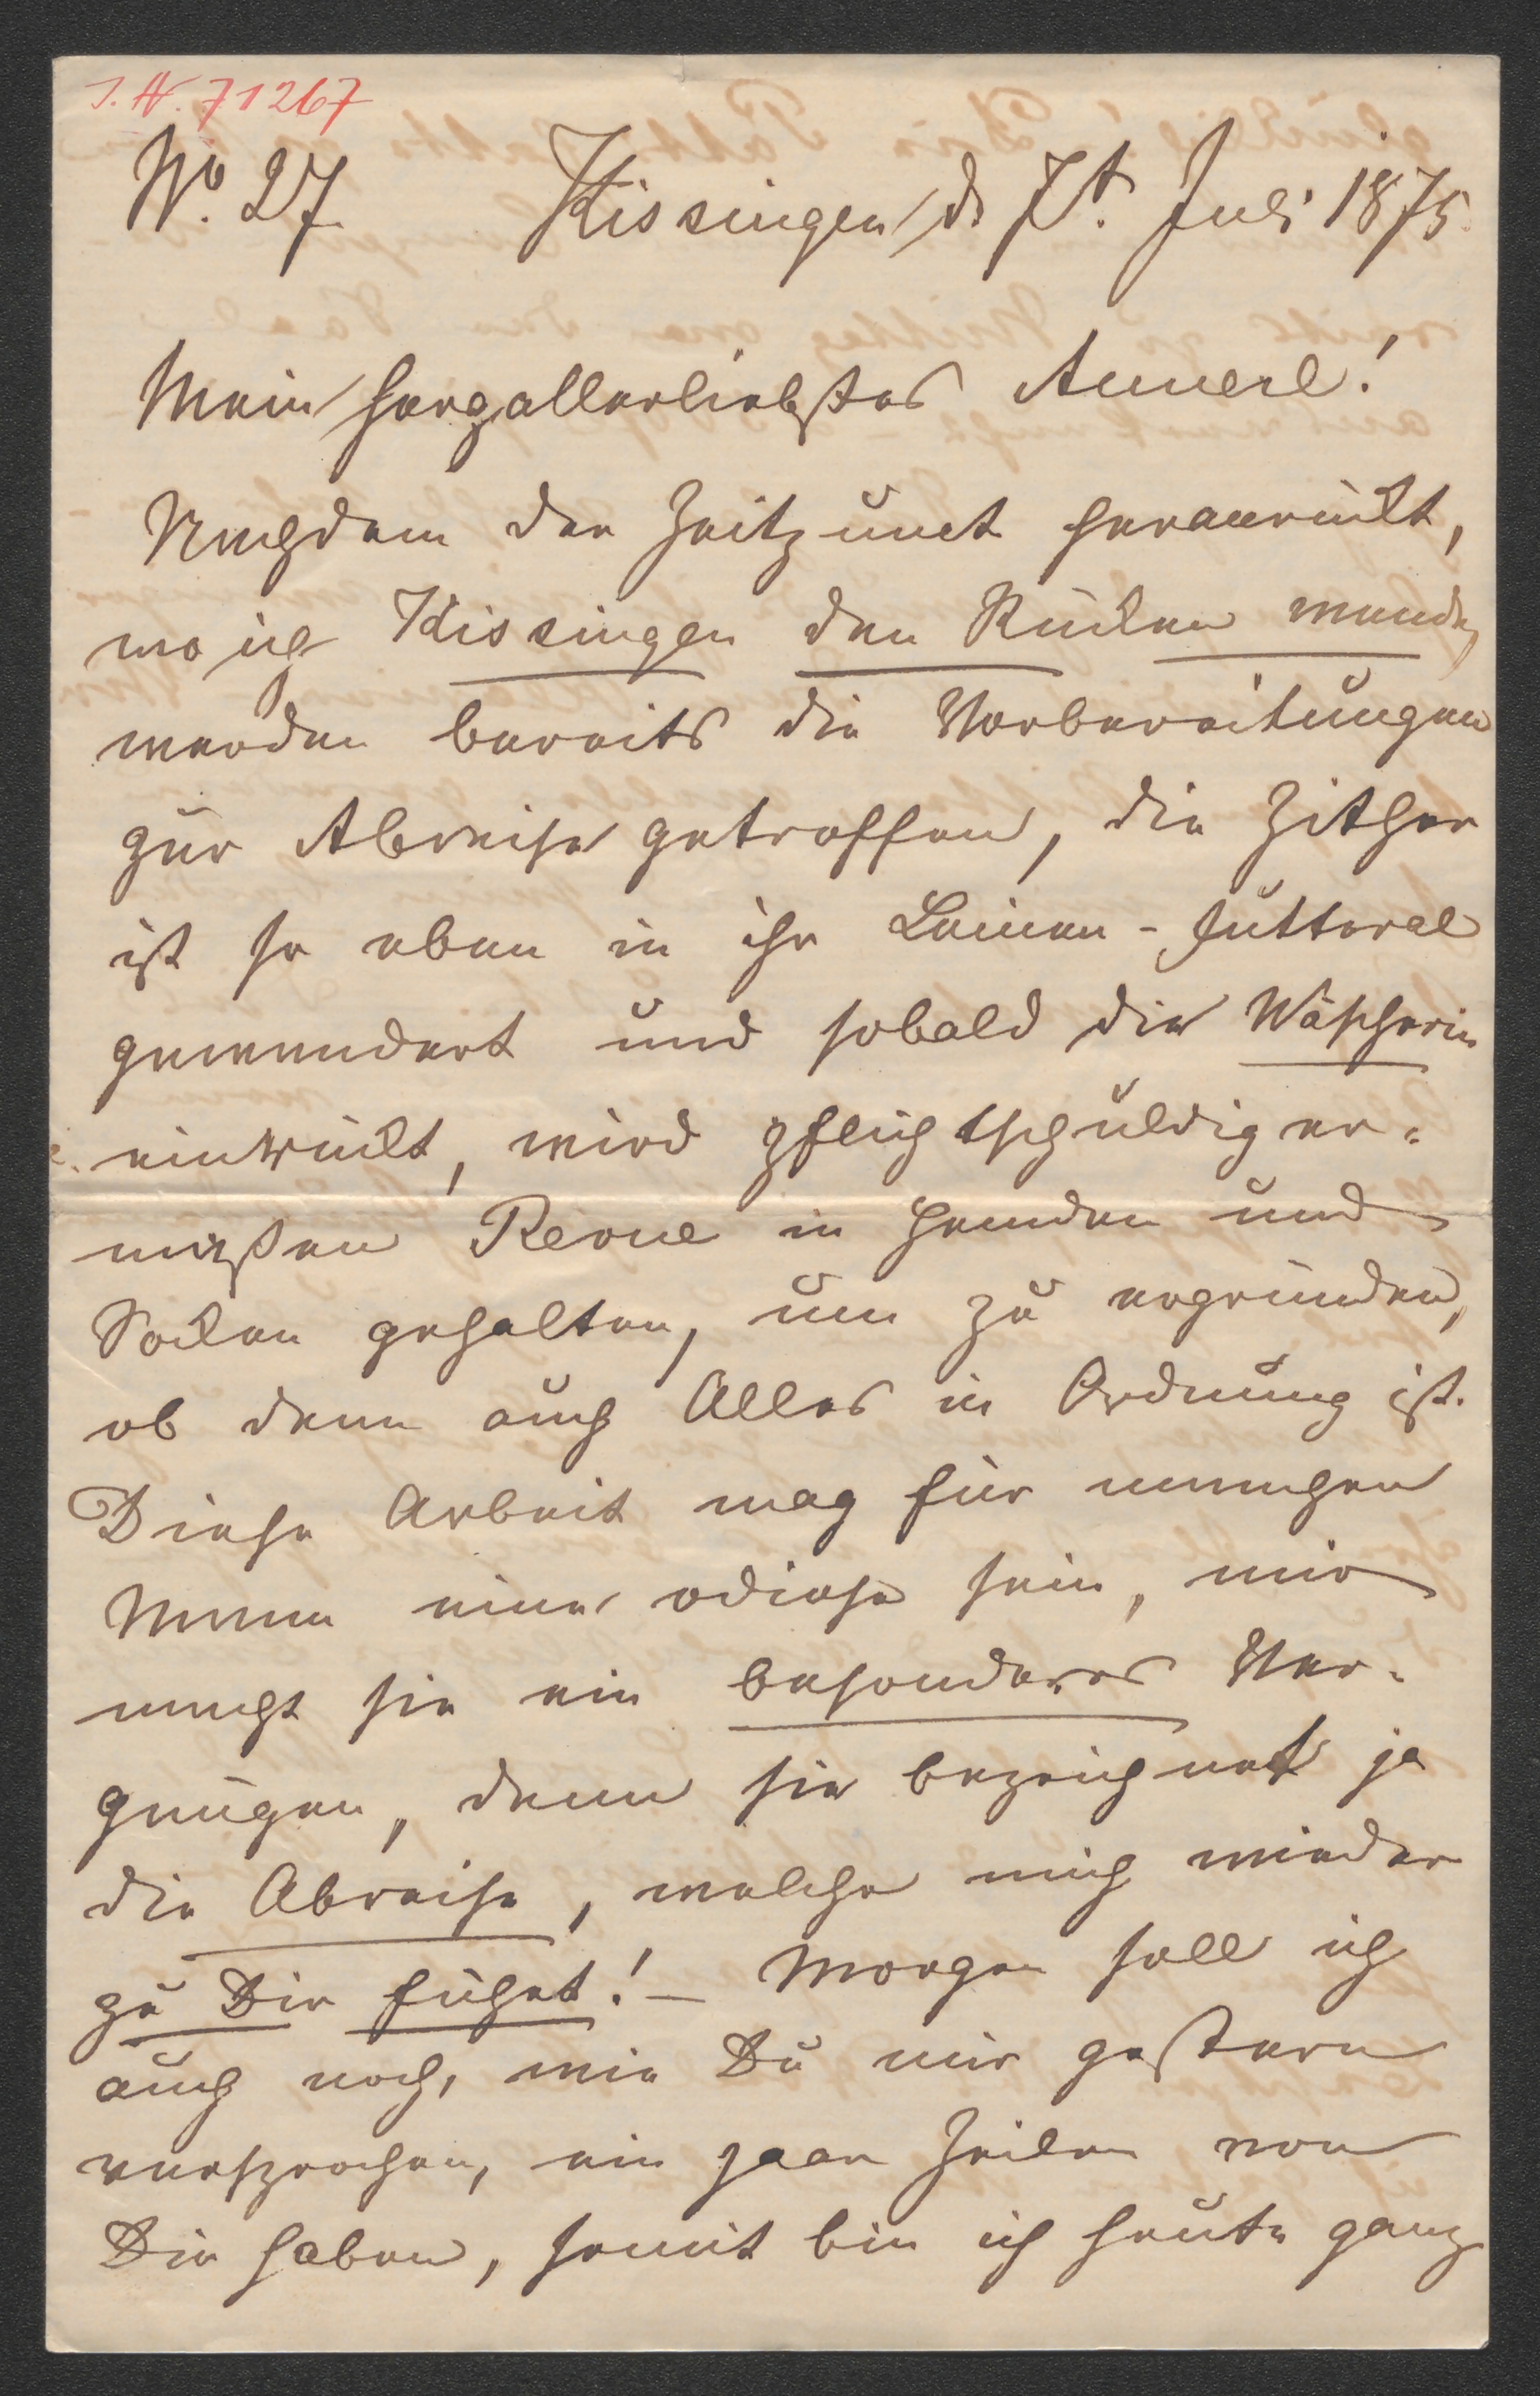 I. N. 71267
No. 27 Kissingen, d. 7t. Juli 1875.
Mein herzallerliebstes Annerl!
Nachdem der Zeitpunct heranrückt,
wo ich Kissingen den Rücken wende,
werden bereits die Vorbereitungen
zur Abreise getroffen, die Zither
ist so eben in ihr Leinen-Futteral
gewandert und sobald die Wäscherin
einrückt, wird pflichtschuldiger-
maßen Revue in Hemden und
Socken gehalten, um zu ergründen,
ob denn auch Alles in Ordnung ist.
Diese Arbeit mag für manchen
Mann eine odiose sein, mir
macht sie ein besonderes Ver-
gnügen, denn sie bezeichnet ja
die Abreise, welche mich wieder
zu Dir führt! – Morgen soll ich
auch noch, wie Du mir gestern
versprochen, ein paar Zeilen von
Dir haben, somit bin ich heute ganz